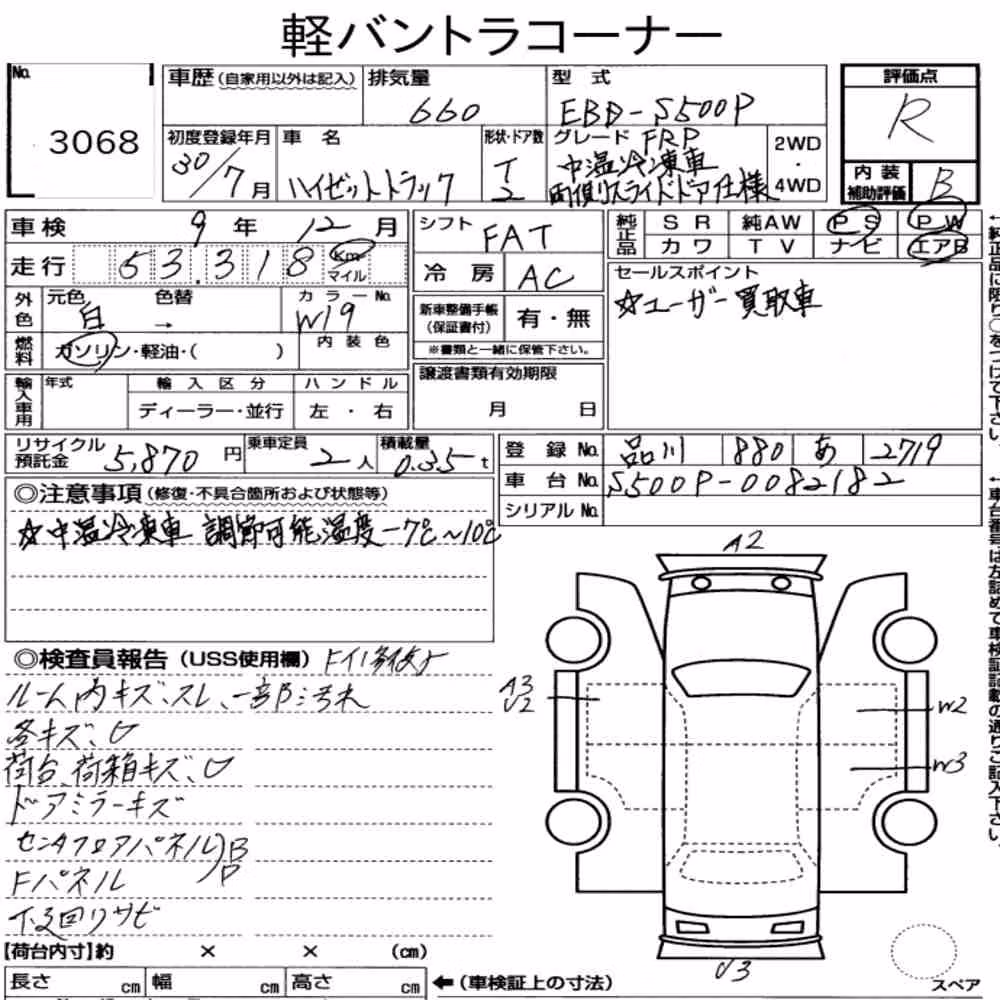 軽バントラコーナー
No. 3068
車歴 (自家用以外は記入)
排気量 660
型式 EBD-S500P
評価点 R
初度登録年月 30/7月
車名 ハイゼットトラック
形状・ドア数 T 2
グレード FRP
中温冷凍車
両側スライドドア仕様
2WD
・
4WD
内装
補助評価 B
車検 9年 12月
走行 53.318 Km
マイル
シフト FAT
冷房 AC
純正品 SR 純AW PS PW
カワ TV ナビ エアB
外色 元色 白 色替 → カラーNo. W19
内装色
燃料 ガソリン・軽油・( )
新車整備手帳
(保証書付) 有・無
※書類と一緒に保管下さい。
セールスポイント
☆ユーザー買取車
輸入車用 年式 輸入区分 ハンドル
ディーラー・並行 左・右
譲渡書類有効期限
月 日
リサイクル
預託金 5,870円
乗車定員 2人
積載量 0.35t
登録No. 品川 880 あ 2719
車台No. S500P-0082182
シリアルNo.
◎注意事項 (修復・不具合箇所および状態等)
☆中温冷凍車 調節可能温度-7℃~10℃
◎検査員報告 (USS使用欄)
ルーム内キズ、スレ、一部汚れ
各キズ、U
荷台、荷箱キズ、U
ドアミラーキズ
センタフロアパネル)B
Fパネル P
下廻りサビ
A2
A3
U2
W2
W3
U3
スペア
【荷台内寸】約 × × (cm)
長さ cm 幅 cm 高さ cm
←(車検証上の寸法)
←純正品に限り○をつけて下さい。
←車台番号は左詰めで車検証記載の通りご記入下さい。